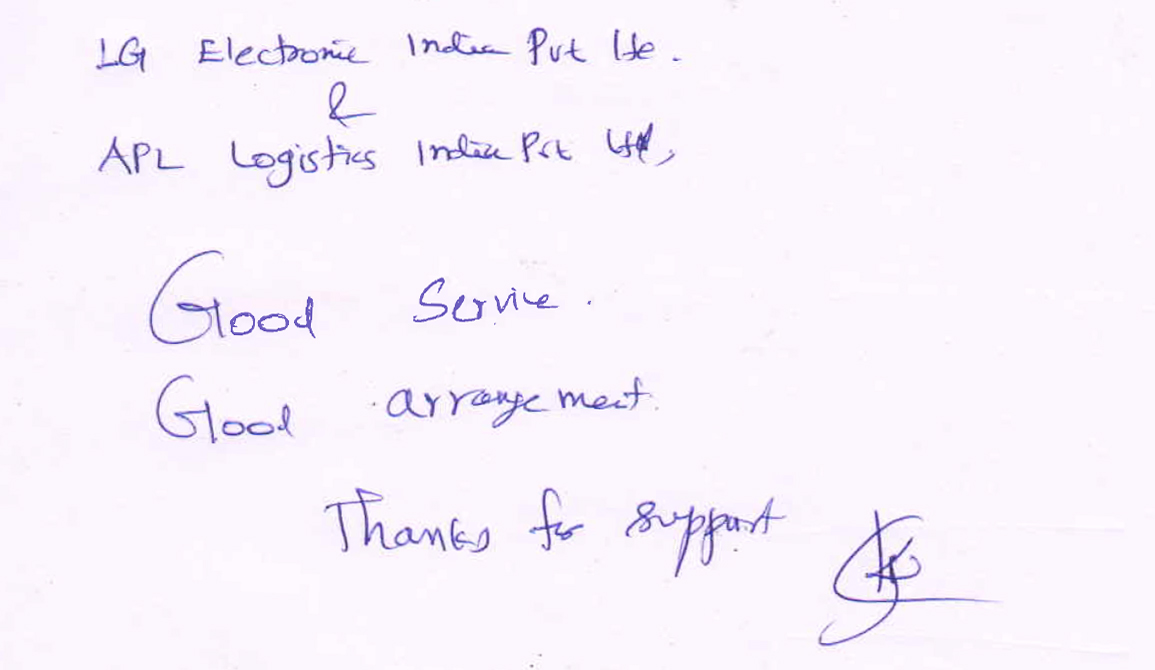 LG Electronic India Pvt lte.
&
APL Logistics India Pvt Ltd,
Good Service.
Good arrangement.
Thanks for support